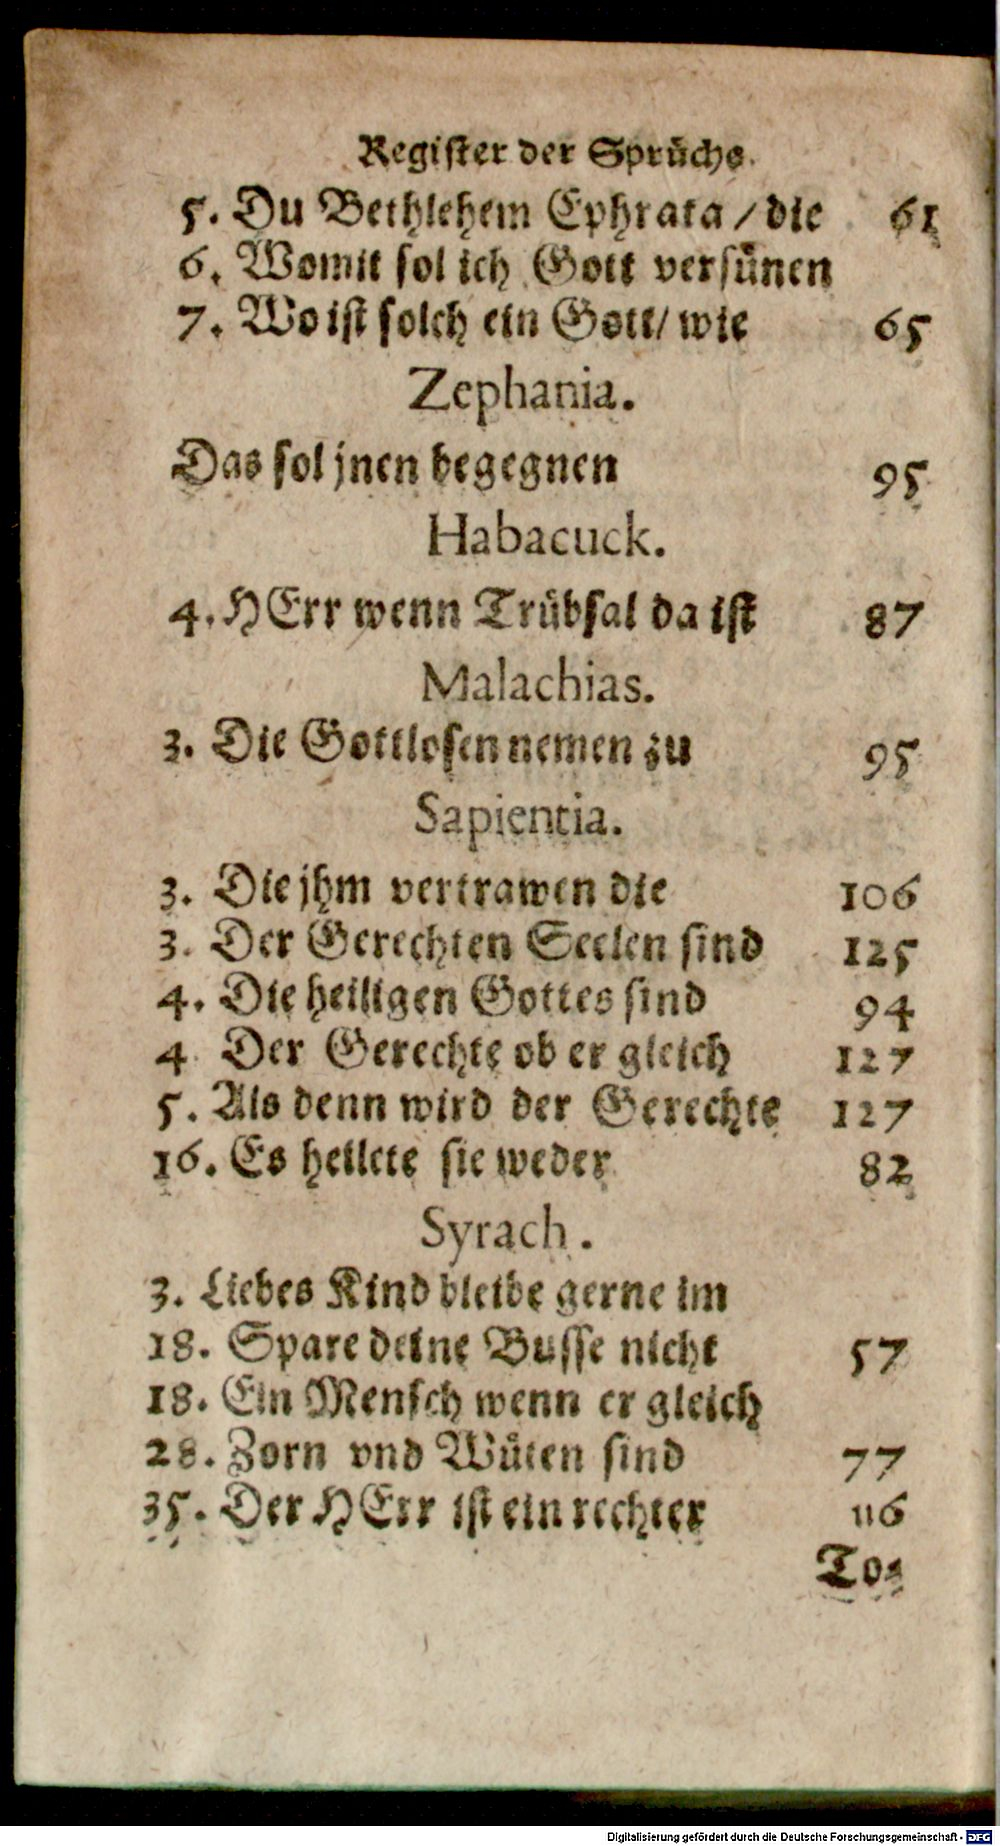 Register der Sprüche.
5. Du Bethlehem Ephrata / die 61
6. Womit sol ich Gott versünen
7. Wo ist solch ein Gott/ wie 65
Zephania.
Das sol jnen begegnen 95
Habacuck.
4. HErr wenn Trübsal da ist 87
Malachias.
3. Die Gottlosen nemen zu 95
Sapientia.
3. Die jhm vertrawen die 106
3. Der Gerechten Seelen sind 125
4. Die heiligen Gottes sind 94
4 Der Gerechte ob er gleich 127
5. Als denn wird der Gerechte 127
16. Es heilete sie weder 82
Syrach.
3. Liebes Kind bleibe gerne im
18. Spare deine Busse nicht 57
18. Ein Mensch wenn er gleich
28. Zorn vnd Wüten sind 77
35. Der HErr ist ein rechter 116
To=
Digitalisierung gefördert durch die Deutsche Forschungsgemeinschaft - DFG